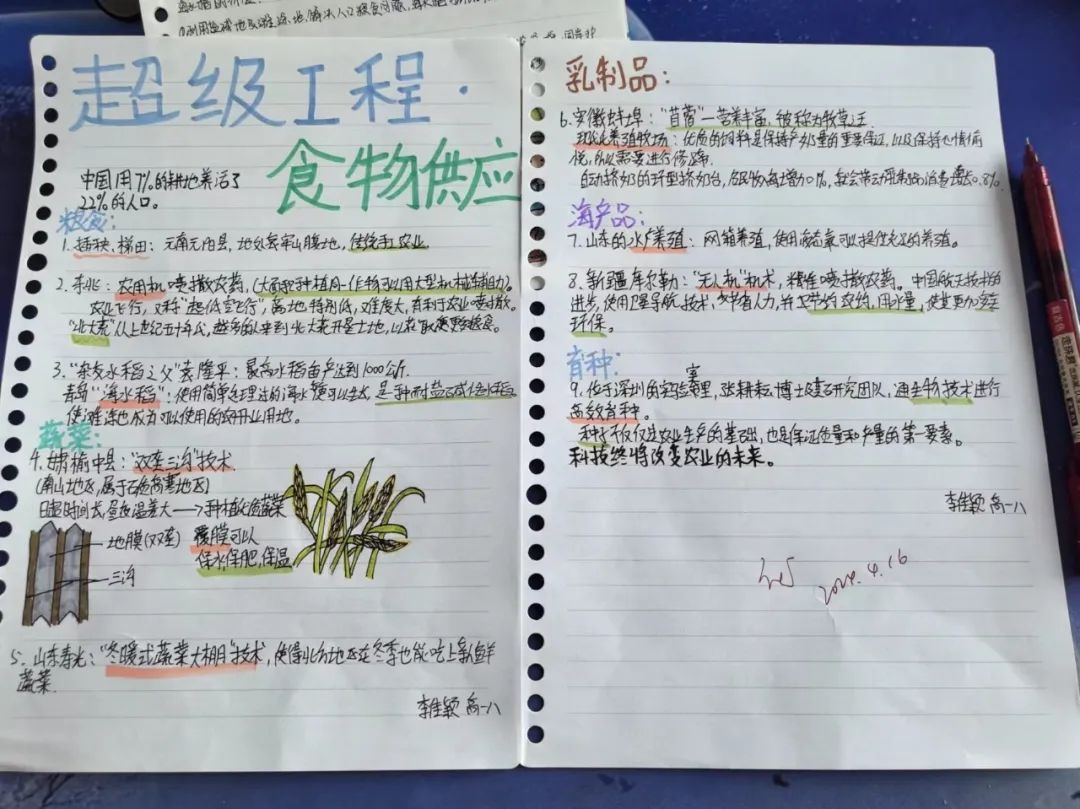 超级工程·
食物供应
中国用7%的耕地养活了
22%的人口。
粮食:
1.插秧、梯田:云南元阳县,地处哀牢山腹地,传统手工农业
2.东北:农用机喷撒农药。(大面积种植月一作物可以用大型机械等
农业飞行,又称"超低空飞行",离地特别低,难度大,有利于农业喷撒。
"北大荒"从上世纪五十年代,越来越多的人来到北大荒开垦土地,
3."杂交水稻之父"袁隆平:最高水稻亩产达到1000公斤.
青岛"海水稻":使用简单处理过的海水便可以生长,是一种耐盐
使滩涂也成为可以使用的农用地。
蔬菜:
4.甘肃榆中县:"双垄三沟"技术.
(南山地区,属于石质高寒地区)
日照时间长,昼夜温差大→种植优质蔬菜
地膜(双垄) 覆膜可以
保水,保肥,保温
三沟
5.山东寿光:"冬暖式蔬菜大棚"技术,使得北方地区在冬季也能吃上新鲜
蔬菜.
李佳颖 高一八
乳制品:
6.安徽蚌埠:"苜蓿"—营养丰富,被称为牧草之王
现代化养殖牧场:优质的饲料是保持产奶量的重要保证,以及保持心情愉
悦,所以需要进行修蹄.
海产品:
7.山东的水产养殖:网箱养殖,使用
8.新疆库尔勒:"无人机"机术,精准喷撒农药。中国航天技术的
进步,使用卫星导航技术,节省人力,并
环保。
育种:
9.位于深圳的实验室里,张耕耘博士建立研究团队,通过分子技术进行
高效育种。
种子不仅仅是农业生产的基础,也是保证质量和产量的第一要素。
科技终将改变农业的未来。
李佳颖 高一八
2024.4.16